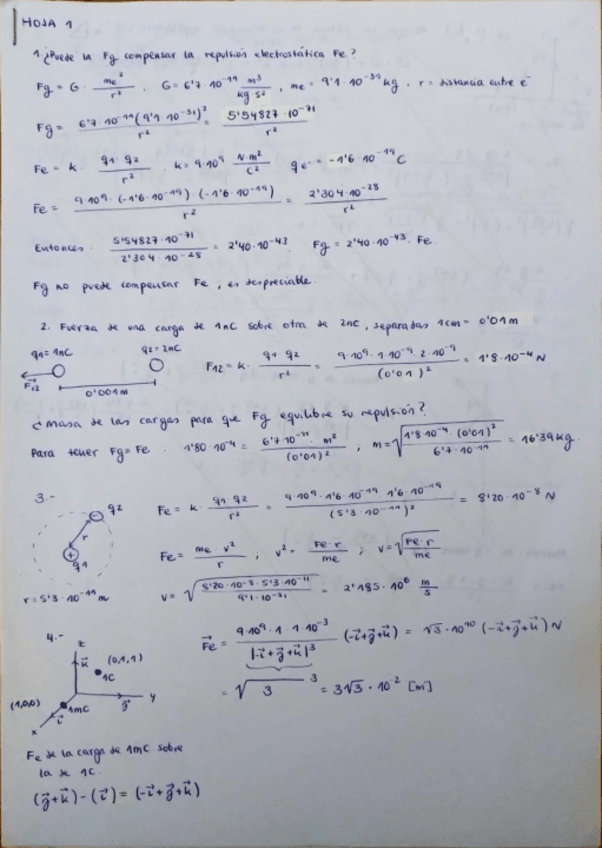 HOJA 1
1. ¿Puede la Fg compensar la repulsión electrostática Fe?
Fg = G · me² / r² . G = 6'7·10⁻¹¹ m³ / kg·s² , me = 9'1·10⁻³¹ kg , r = distancia entre e⁻
Fg = 6'7·10⁻¹¹ (9'1·10⁻³¹)² / r² = 5'54827·10⁻⁷¹ / r²
Fe = k · q1·q2 / r² k = 9·10⁹ N·m² / C² qe⁻ = -1'6·10⁻¹⁹ C
Fe = 9·10⁹·(-1'6·10⁻¹⁹)·(-1'6·10⁻¹⁹) / r² = 2'304·10⁻²⁸ / r²
Entonces: 5'54827·10⁻⁷¹ / 2'304·10⁻²⁸ = 2'40·10⁻⁴³ . Fg = 2'40·10⁻⁴³ · Fe.
Fg no puede compensar Fe , es despreciable.
2. Fuerza de una carga de 1nC sobre otra de 2nC, separadas 1cm = 0'01m
q1=1nC q2=2nC
F12 0'001m
F12 = k · q1·q2 / r² = 9·10⁹·1·10⁻⁹·2·10⁻⁹ / (0'01)² = 1'8·10⁻⁴ N
¿Masa de las cargas para que Fg equilibre su repulsión?
Para tener Fg=Fe 1'80·10⁻⁴ = 6'7·10⁻¹¹·m² / (0'01)² , m = √(1'8·10⁻⁴·(0'01)² / 6'7·10⁻¹¹) = 16'39 kg.
3.-
q2
r
q1
r = 5'3·10⁻¹¹ m
Fe = k · q1·q2 / r² = 9·10⁹·1'6·10⁻¹⁹·1'6·10⁻¹⁹ / (5'3·10⁻¹¹)² = 8'20·10⁻⁸ N
Fe = me·v² / r ; v² = Fe·r / me ; v = √(Fe·r / me)
v = √(8'20·10⁻⁸·5'3·10⁻¹¹ / 9'1·10⁻³¹) = 2'185·10⁶ m/s
4.-
z
k⃗
(0,1,1)
1C
(1,0,0)
1mC
i⃗
j⃗
y
x
F⃗e = 9·10⁹·1·1·10⁻³ / |-i⃗+j⃗+k⃗|³ (-i⃗+j⃗+k⃗) = √3·10¹⁰ (-i⃗+j⃗+k⃗) N
= √3 ³ = 3√3·10⁻² [m]
Fe de la carga de 1mC sobre
la de 1C.
(j⃗+k⃗)-(i⃗) = (-i⃗+j⃗+k⃗)